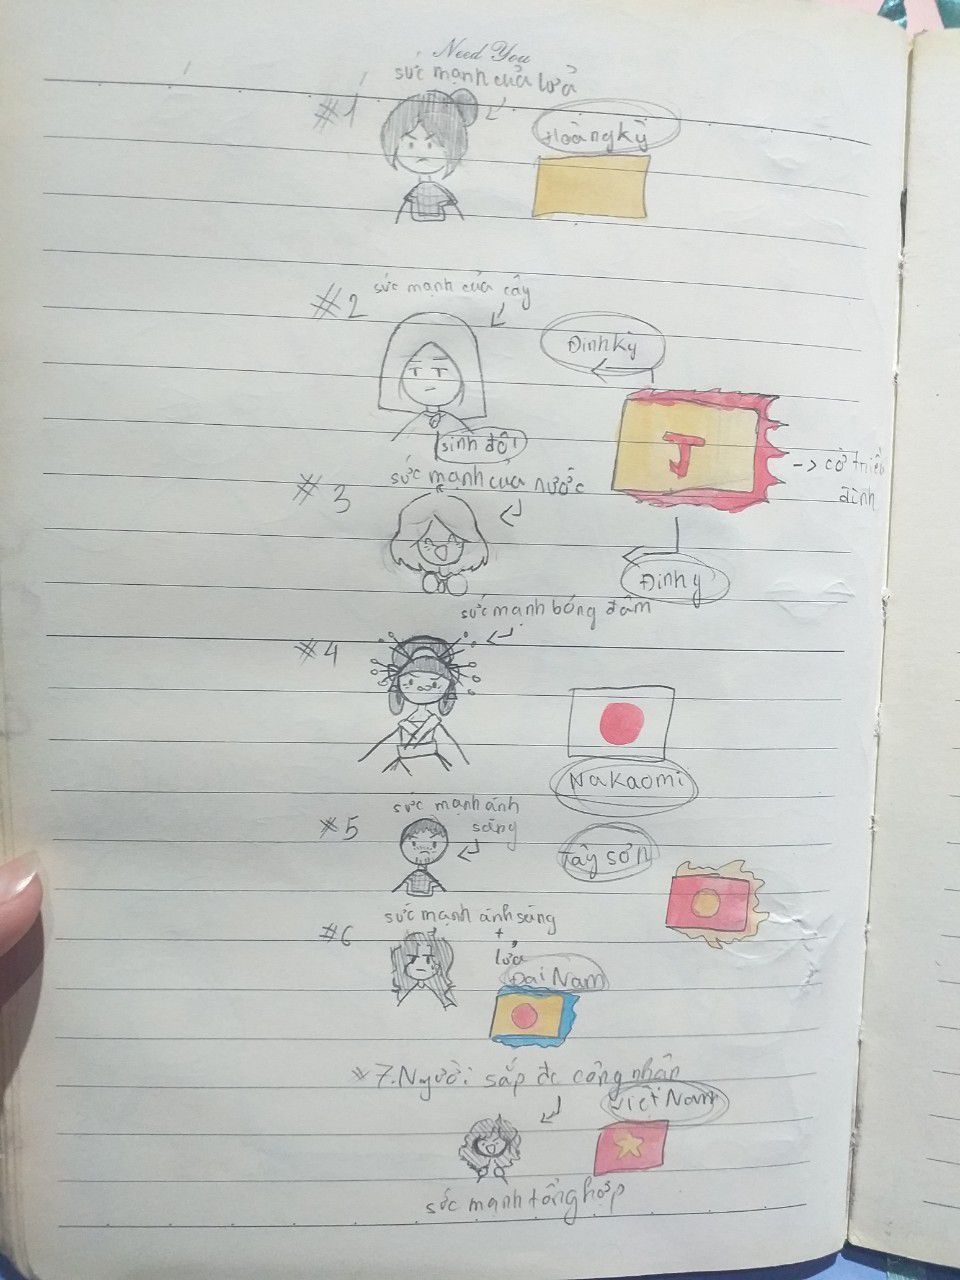 Need You
sức mạnh của lửa
#1
Hoàng kỳ
sức mạnh của cây
#2
Đinh kỳ
sinh đôi
J
-> cờ triều
đình
sức mạnh của nước
#3
Đinh y
sức mạnh bóng đâm
#4
Nakaomi
sức mạnh ánh
sáng
#5
Tây sơn
sức mạnh ánh sáng
+
lửa
#6
Đại Nam
#7. Người sắp đc công nhận
Việt Nam
sức mạnh tổng hợp